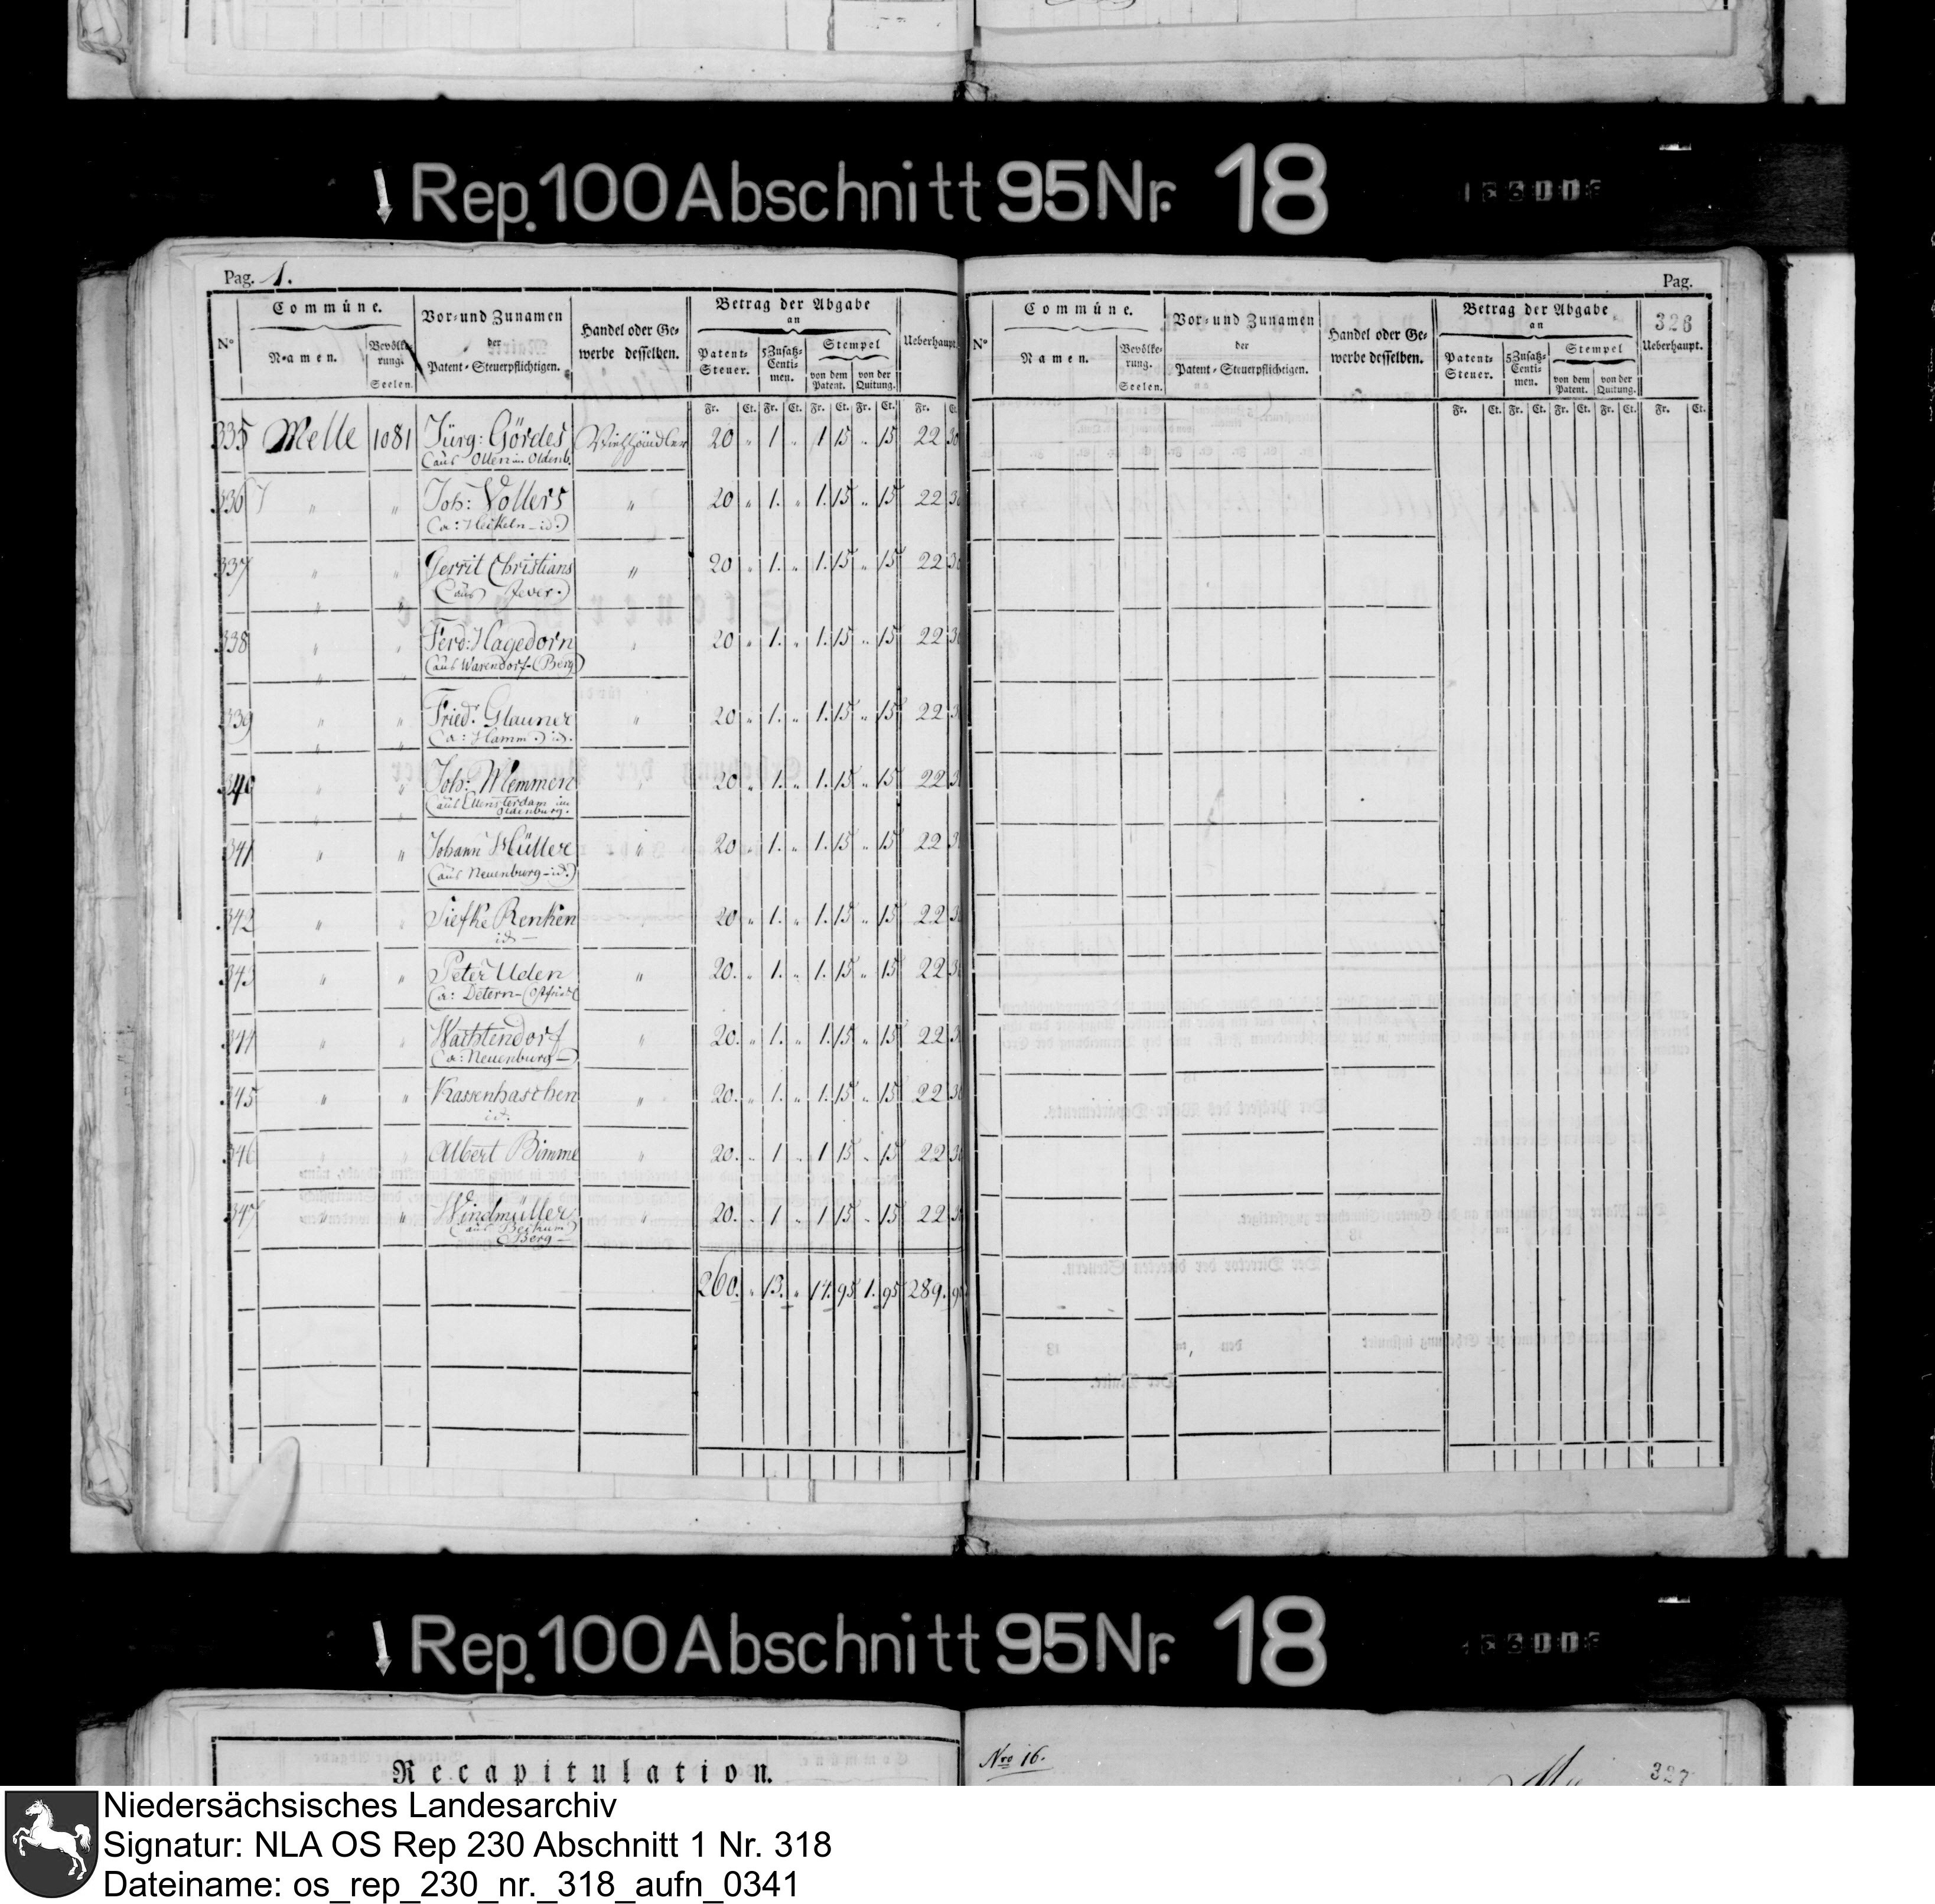 Rep. 100 Abschnitt 95 Nr. 18
Pag. 1.
Commúne.
Vor- und Zunamen
der
Patent-Steuerpflichtigen.
Handel oder Ge-
werbe desselben.
Betrag der Abgabe
an
Ueberhaupt.
N°
Namen.
Bevölke-
rung.
Seelen.
Patent-
Steuer.
5 Zusatz-
Centi-
men.
Stempel
von dem
Patent.
von der
Quitung.
Fr. Ct. Fr. Ct. Fr. Ct. Fr. Ct. Fr. Ct.
335 Melle 1081 Jürg: Gördes Viehhändler 20 „ 1 „ 1 15 „ 15 22 30
(aus Ollen im Oldenb.
336 „ „ Joh: Vollers „ 20 „ 1. „ 1. 15 „ 15 22 30
(a: Heikeln - id.)
337 „ „ Gerrit Christians „ 20 „ 1. „ 1. 15 „ 15 22 30
(aus Jever.)
338 „ „ Ferd: Hagedorn „ 20 „ 1. „ 1. 15 „ 15 22 30
(aus Warendorf - (Berg)
339 „ „ Fried. Glauner „ 20 „ 1. „ 1. 15 „ 15 22 30
(a: Hamm.) id.
340 „ „ Joh: Memmen „ 20 „ 1. „ 1. 15 „ 15 22 30
(aus Ellensterdam im
Oldenburg.
341 „ „ Johann Müller „ 20 „ 1. „ 1. 15 „ 15 22 30
(aus Neuenburg - id.)
342 „ „ Siefke Renken „ 20 „ 1. „ 1. 15 „ 15 22 30
id -
343 „ „ Peter Uden „ 20. „ 1. „ 1. 15 „ 15 22 30
(a: Detern -
344 „ „ Wachtendorf „ 20. „ 1. „ 1. 15 „ 15 22 30
(a: Neuenburg -)
345 „ „ Kassenhaschen „ 20. „ 1. „ 1. 15 „ 15 22 30
id.
346 „ „ Albert Bimme „ 20. „ 1 „ 1 15 „ 15 22 30
347 „ „ Windmüller „ 20. „ 1 „ 1 15 „ 15 22 30
(aus Beckum)
Berg -
260. „ 13. „ 14. 95 1. 95 289. 90
Pag.
326
N°
Commúne.
Namen.
Bevölke-
rung.
Seelen.
Vor- und Zunamen
der
Patent-Steuerpflichtigen.
Handel oder Ge-
werbe desselben.
Betrag der Abgabe
an
Patent-
Steuer.
5 Zusatz-
Centi-
men.
Stempel
von dem
Patent.
von der
Quitung.
Ueberhaupt.
Fr. Ct. Fr. Ct. Fr. Ct. Fr. Ct. Fr. Ct.
Rep. 100 Abschnitt 95 Nr. 18
Recapitulation.
Nro 16.
327
Niedersächsisches Landesarchiv
Signatur: NLA OS Rep 230 Abschnitt 1 Nr. 318
Dateiname: os_rep_230_nr._318_aufn_0341